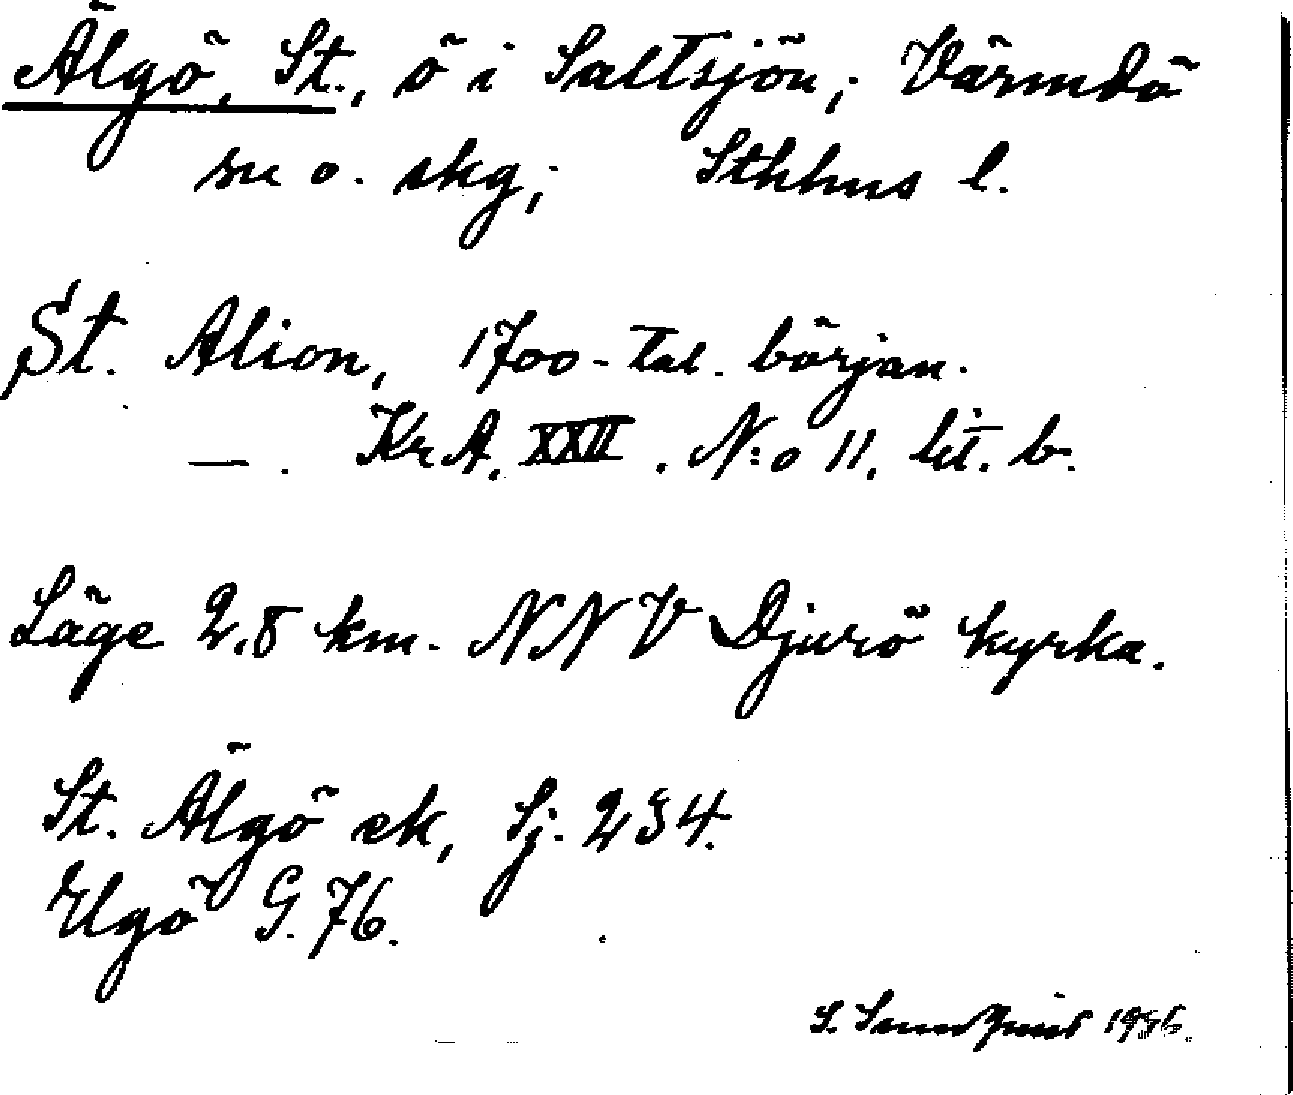 Älgö, St., ö i Saltsjön; Värmdö
sn o. skg; Sthlms l.
St. Alion, 1700-tal. början.
— . KrA. XXII . N:o 11. lit. b.
Läge 2,8 km. NNV Djurö kyrka.
St. Älgö ek, Sj. 234.
Elgö G. 76.
S. Sundquist 19